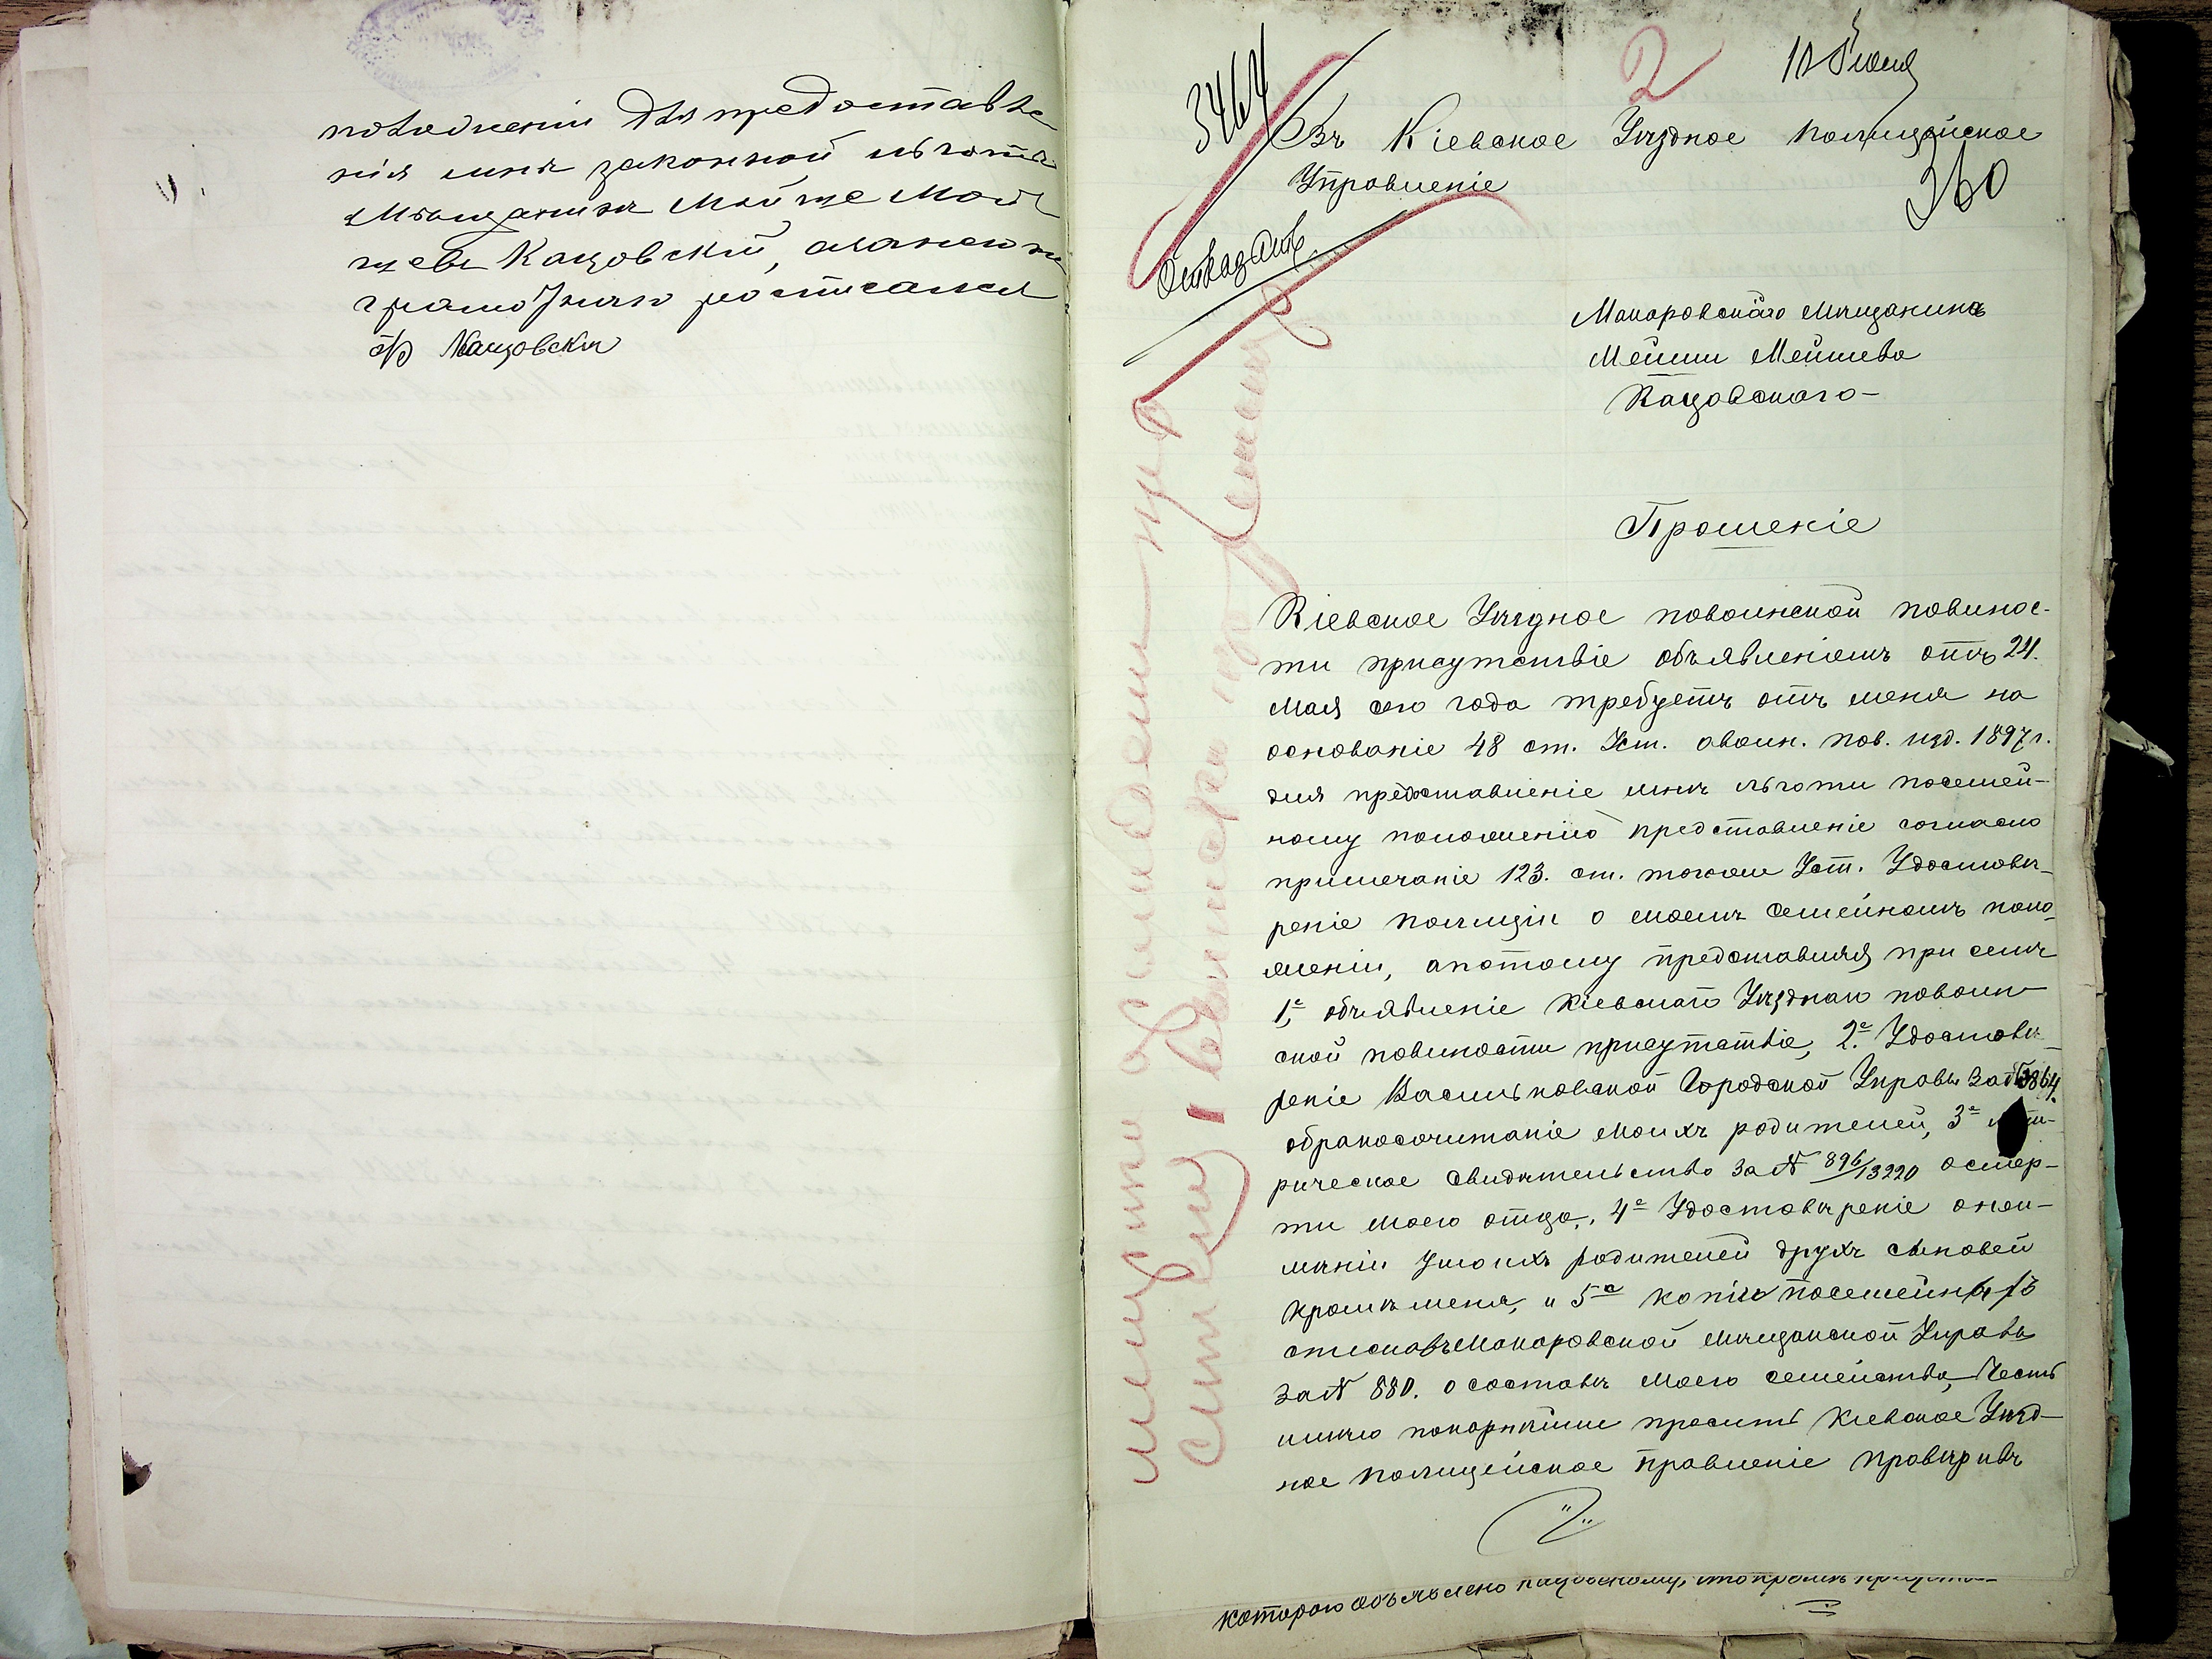 для предоставле-
нія мнѣ законной льготы
Мѣщанинъ Мойше Мой-
шевъ Кацовскій, а за него не
грамотнаго росписался
Кацовскій
3464
2
10 Іюня
Въ Кіевское Уѣздное полицейское
Управленіе
360
Макаровскаго мѣщанина
Мейши Мейшева
Кацовскаго-
Прошеніе
Кіевское Уѣздное повоинской повинос-
ти присутствіе объявленіемъ отъ 24.
Мая сего года требуетъ отъ меня на
основаніе 48 ст. Уст. овоин. пов. изд. 1897г.
для предоставленіе мнѣ льготи посемей-
ному положенію представленіе согласно
примечаніе 123. ст. тогоже Уст. Удостовѣ-
реніе полиціи о моемъ семейномъ поло-
женіи, апотому представляя при семъ
1е, объявленіе Кіевскаго Уѣзднаго повоин-
ской повиности присутствіе, 2е. Удостовѣ-
реніе Васильковской Городской Управы за №3864.
обракосочитаніе моихъ родителей, 3е
рическое свидѣтельство за № 896/13220 осмер-
ти моего отца, 4е Удостовѣреніе онеи-
мѣніи умоихъ родителей другъ сыновей
кромѣ меня, и 5а копію посемейныхъ
списковъ Макаровской мѣщанской Управы
за № 880. о составѣ моего семейства, Честь
имѣю покорнѣйше просить Кіевское Уѣзд-
ное полицейское правленіе провѣривъ
котораго объявлено Кацовскому, что кромѣ